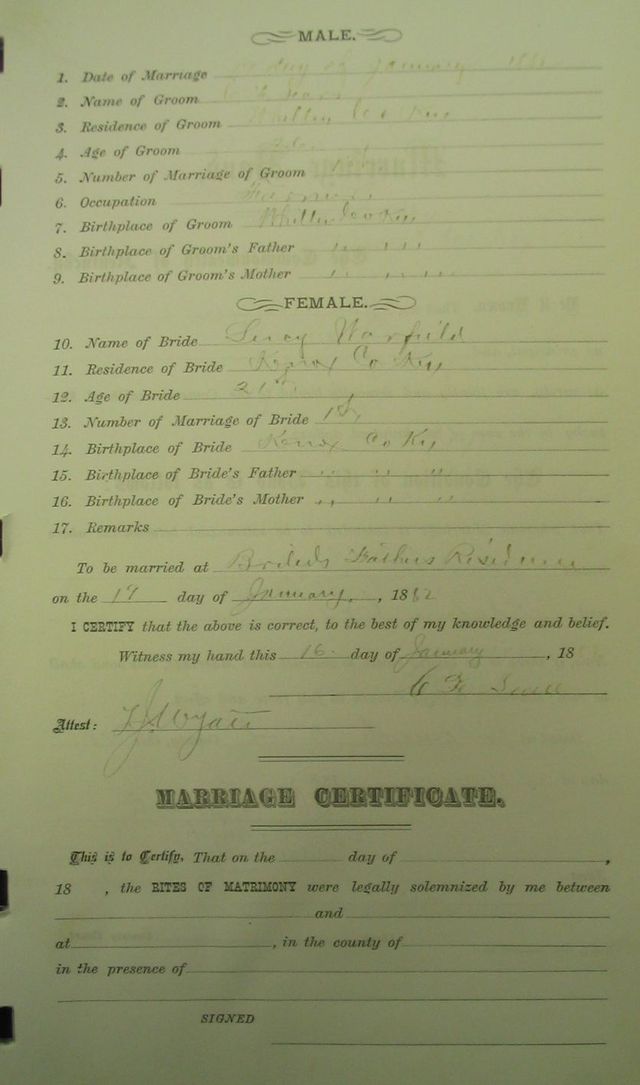 MALE.
1. Date of Marriage day of January
2. Name of Groom
3. Residence of Groom Whitley Co Ky
4. Age of Groom
5. Number of Marriage of Groom
6. Occupation Farmer
7. Birthplace of Groom Whitley Co Ky
8. Birthplace of Groom's Father " " "
9. Birthplace of Groom's Mother " " "
FEMALE.
10. Name of Bride Warfield
11. Residence of Bride Knox Co Ky
12. Age of Bride 21
13. Number of Marriage of Bride 1st
14. Birthplace of Bride Knox Co Ky
15. Birthplace of Bride's Father " " "
16. Birthplace of Bride's Mother " " "
17. Remarks
To be married at Brides Fathers Residence
on the day of January, 1882
I CERTIFY that the above is correct, to the best of my knowledge and belief.
Witness my hand this 16 day of January, 18
C F
Attest: Wyatt
MARRIAGE CERTIFICATE.
This is to Certify, That on the day of ,
18 , the RITES OF MATRIMONY were legally solemnized by me between
and
at , in the county of
in the presence of
SIGNED